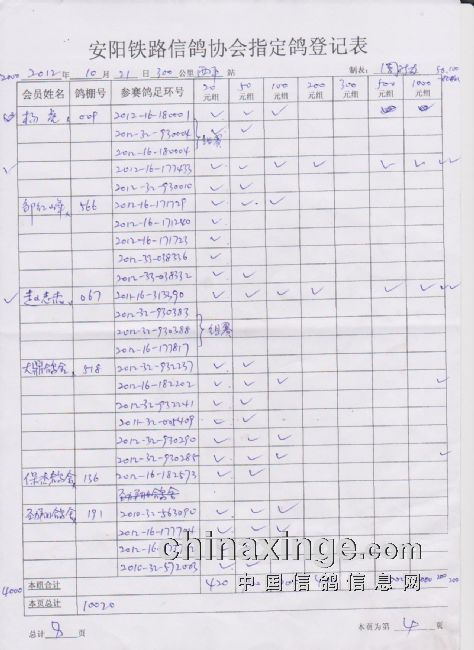 安阳铁路信鸽协会指定鸽登记表
2012 年 10 月 21 日 300 公里 西平 站 制表:
会员姓名 鸽棚号 参赛鸽足环号 20元组 50元组 100元组 200元组 300元组 500元组 1000元组
杨亮 009 2012-16-180001
2012-32-930004
2012-16-180004
2012-16-177433
2012-32-930010
邹红峰 566 2012-16-171729
2012-16-171240
2012-16-171723
2012-33-038336
2012-33-038332
赵志杰 067 2011-16-313390
2012-32-930383
2012-32-930388 组赛
2012-16-177817
大鼎鸽舍 518 2012-32-932237
2012-16-182202
2012-32-932241
2011-32-005409
2012-32-930290
2012-32-930285
保杰鸽舍 136 2012-16-182573
191 2010-32-563090
2012-16-177704
2012-16-
2010-32-572003
本组合计 420
本页总计 10020
4000
总计 8 页 本页为第 4 页
chinaxinge.com
中国信鸽信息网